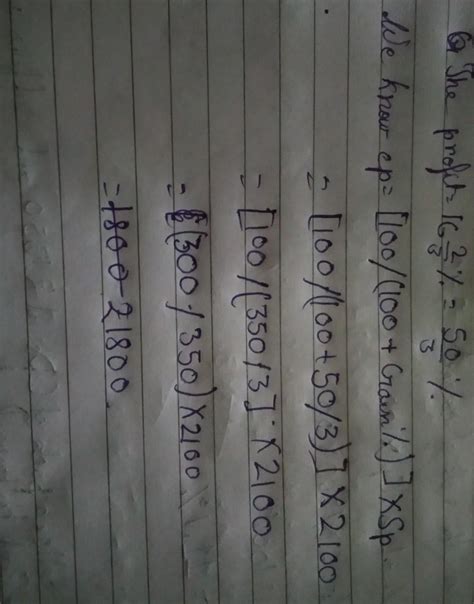 Q The profit = 16 2/3 % = 50/3 %.
We know cp = [100/(100 + Gain%)] × Sp.
= [100/(100 + 50/3)] × 2100
= [100/(350/3] × 2100
= (300/350) × 2100
= 1800 21800